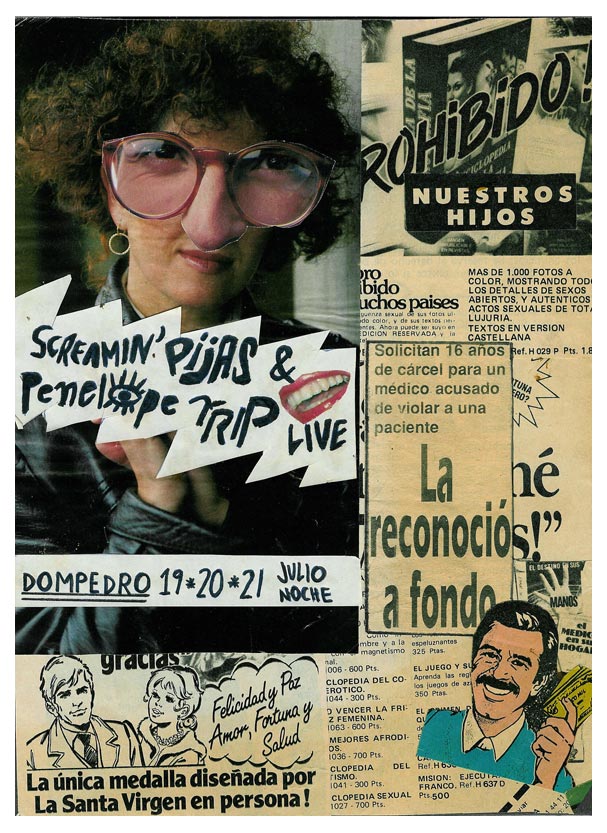 SCREAMIN' PIJAS &
PENELOPE TRIP
LIVE
DOMPEDRO 19*20*21 JULIO
NOCHE
PROHIBIDO!
NUESTROS
HIJOS
MAS DE 1.000 FOTOS A
COLOR, MOSTRANDO TODO
LOS DETALLES DE SEXOS
ABIERTOS, Y AUTENTICOS
ACTOS SEXUALES DE TOTA
LUJURIA.
TEXTOS EN VERSION
CASTELLANA
Ref. H 029 P Pts. 1.8
bro
ibido
uchos paises
Solicitan 16 años
de cárcel para un
médico acusado
de violar a una
paciente
La
reconoció
a fondo
né
s!”
EL DESTINO EN SUS
MANOS
el
MEDIC
en su
HOGAR
gracias
Felicidad y Paz
Amor, Fortuna y
Salud
La única medalla diseñada por
La Santa Virgen en persona!
006 - 600 Pts.
CLOPEDIA DEL CO-
EROTICO.
044 - 300 Pts.
O VENCER LA FRI-
Z FEMENINA.
063 - 600 Pts.
MEJORES AFRODI-
OS.
036 - 700 Pts.
CLOPEDIA DEL
TISMO.
041 - 300 Pts.
CLOPEDIA SEXUAL
027 - 700 Pts.
espeluznantes
325 Pts.
EL JUEGO Y SU
Aprenda las reg
los juegos de aza
350 Pts.
Ref. H
MISION: EJECUTA
FRANCO. Ref. H 637 D
Pts. 500